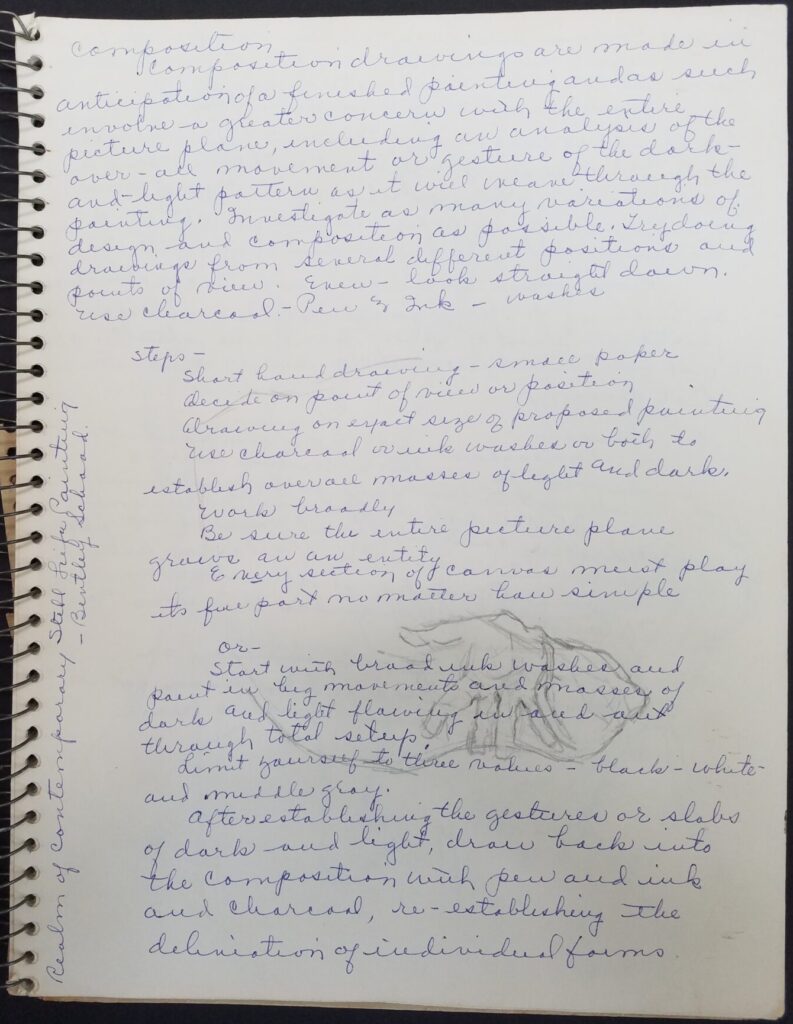 Composition
Composition drawings are made in
anticipation of a finished painting and as such
involve a greater concern with the entire
picture plane, including an analysis of the
over-all movement or gesture of the dark-
and-light pattern as it will weave through the
painting. Investigate as many variations of
design and composition as possible. Try doing
drawings from several different positions and
points of view. Even - look straight down.
Use charcoal - Pen & Ink - washes
Steps -
Short hand drawing - small paper
Decide on point of view or position
Drawing on exact size of proposed painting
Use charcoal or ink washes or both to
establish overall masses of light and dark.
Work broadly
Be sure the entire picture plane
grows an an entity
Every section of canvas must play
its part no matter how simple
or -
Start with broad ink washes and
paint in big movements and masses of
dark and light flowing in and out
through total setup.
Limit yourself to three values - black - white -
and middle gray.
After establishing the gestures or slabs
of dark and light, draw back into
the composition with pen and ink
and charcoal, re-establishing the
deliniation of individual forms.
Realm of Contemporary Still Life Painting
- Bentley Schaad.